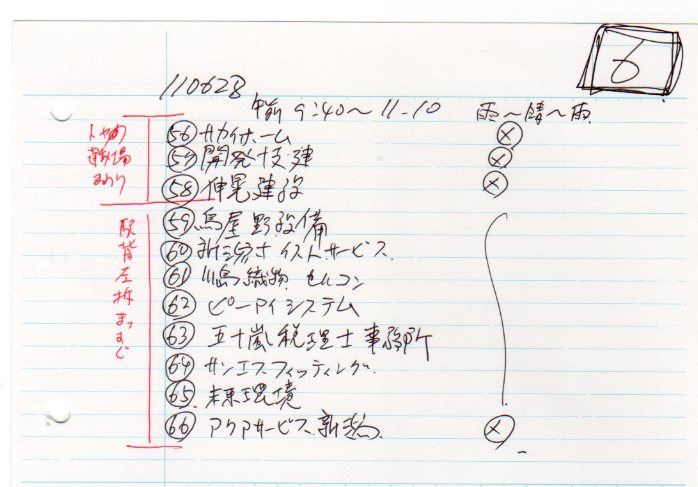 6
110628
午前 9:40〜11-10 雨〜晴〜雨
56 サカイホーム ×
57 開発技建 ×
58 伸晃建設 ×
59 鳥屋野設備
60 新潟ナイストサービス
61 川島織物セルコン
62 ピーアイシステム
63 五十嵐税理士事務所
64 サンエスフィッティング
65 未来環境
66 アクアサービス新潟 ×
運動場
まわり
駅背左折まっすぐ